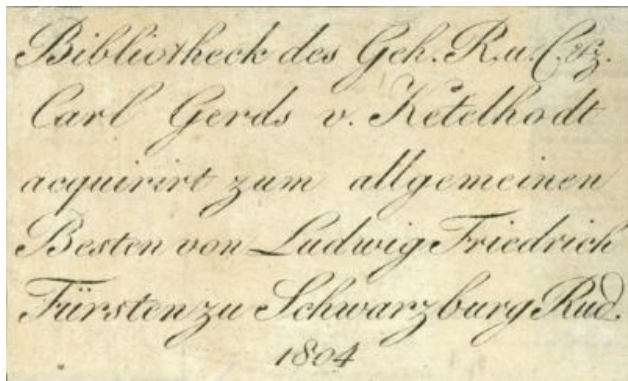 Bibliotheck des Geh. R. u. C. &z.
Carl Gerds v. Ketelhodt
acquirirt zum allgemeinen
Besten von Ludwig Friedrich
Fürsten zu Schwarzburg Rud.
1804